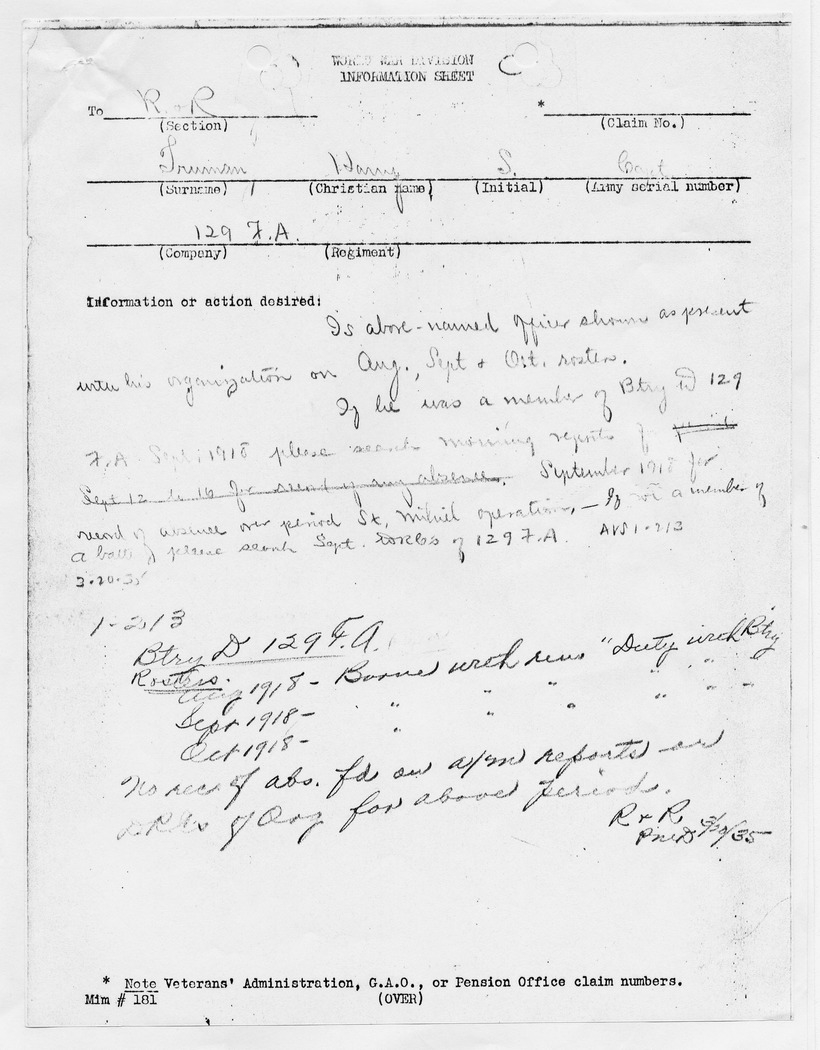 WORLD WAR DIVISION
INFORMATION SHEET
To R + R *
(Section) (Claim No.)
Truman Harry S. Capt
(Surname) (Christian name) (Initial) (Army serial number)
129 F.A.
(Company) (Regiment)
Information or action desired:
Is above-named officer shown as present
with his organization on Aug., Sept & Oct. rosters.
If he was a member of Btry D 129
F.A. Sept. 1918 please search morning reports of
Sept 12 to 16 for record of any absence. September 1918 for
record of absence over period St. Mihiel operation, - If not a member of
a batt'y please search Sept. of 129 F.A. AVS 1-213
3-20-35
1-213
Btry D 129 F.A.
Rosters.
Aug 1918 - Borne with rem "Duty with Btry
Sept 1918 - " " " " " "
Oct 1918 - " " " " " "
No rec of abs. fd on a/m reports or
of Org for above periods.
R + R
3/20/35
* Note Veterans' Administration, G.A.O., or Pension Office claim numbers.
Mim # 181 (OVER)